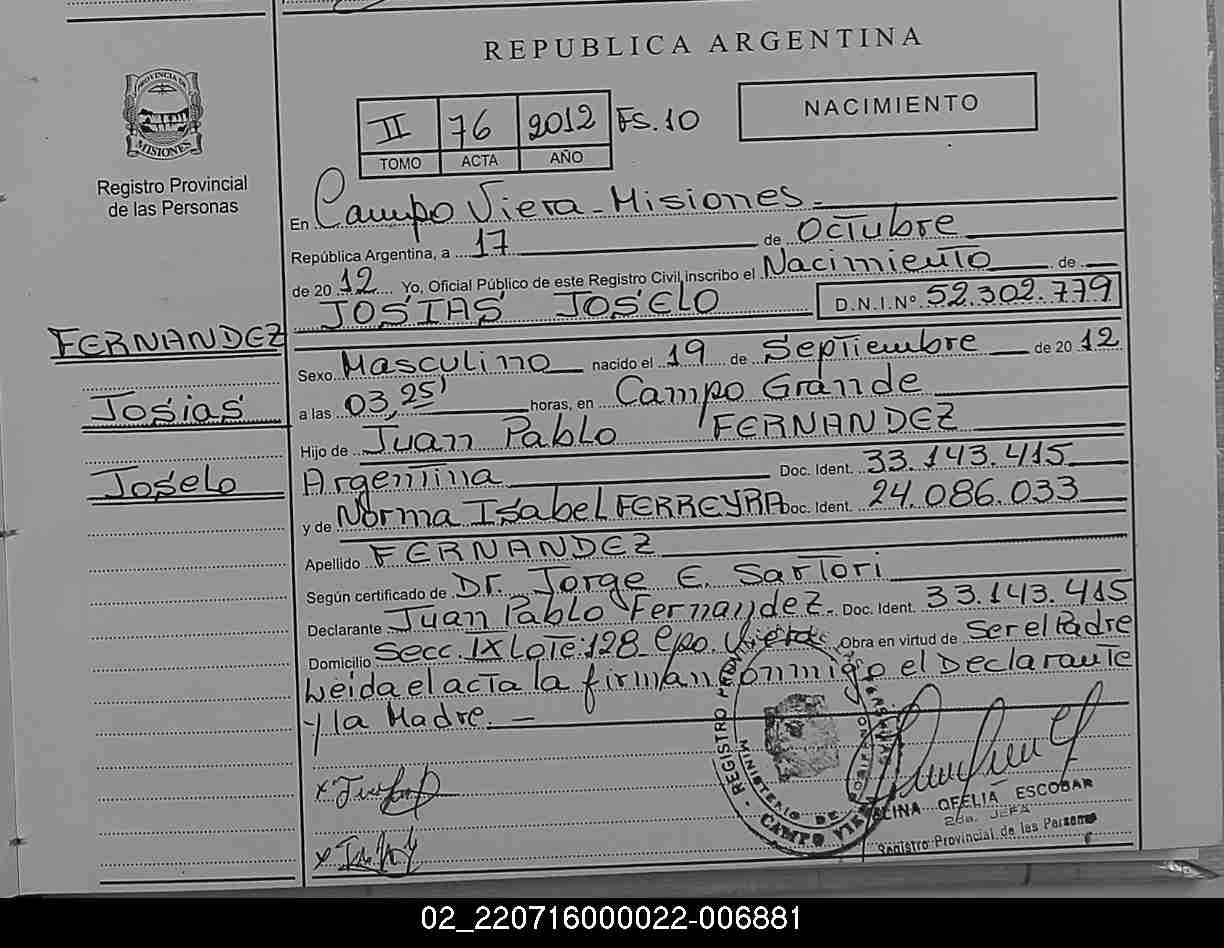 REPUBLICA ARGENTINA
PROVINCIA DE
MISIONES
Registro Provincial
de las Personas
II 76 2012 FS.10
TOMO ACTA AÑO
NACIMIENTO
En Campo Viera - Misiones.-
República Argentina, a 17 de Octubre
de 2012 Yo, Oficial Público de este Registro Civil, inscribo el Nacimiento de
JOSIAS JOSELO D.N.I.Nº 52.302.779
FERNANDEZ
Josias
Joselo
Sexo Masculino nacido el 19 de Septiembre de 2012
a las 03,25' horas, en Campo Grande
Hijo de Juan Pablo FERNANDEZ
Argentina Doc. Ident. 33.143.415
y de Norma Isabel FERREYRA Doc. Ident. 24.086.033
Apellido FERNANDEZ
Según certificado de Dr. Jorge E. Sartori
Declarante Juan Pablo Fernandez.- Doc. Ident. 33.143.415
Domicilio Secc. IX Lote: 128 Cpo. Viera Obra en virtud de Ser el Padre
Leida el acta la firman conmigo el Declarante
y la Madre. —
REGISTRO
MINISTERIO DE
CAMPO VIERA
OFELIA ESCOBAR
2da. JEFA
Registro Provincial de las Personas
02_220716000022-006881